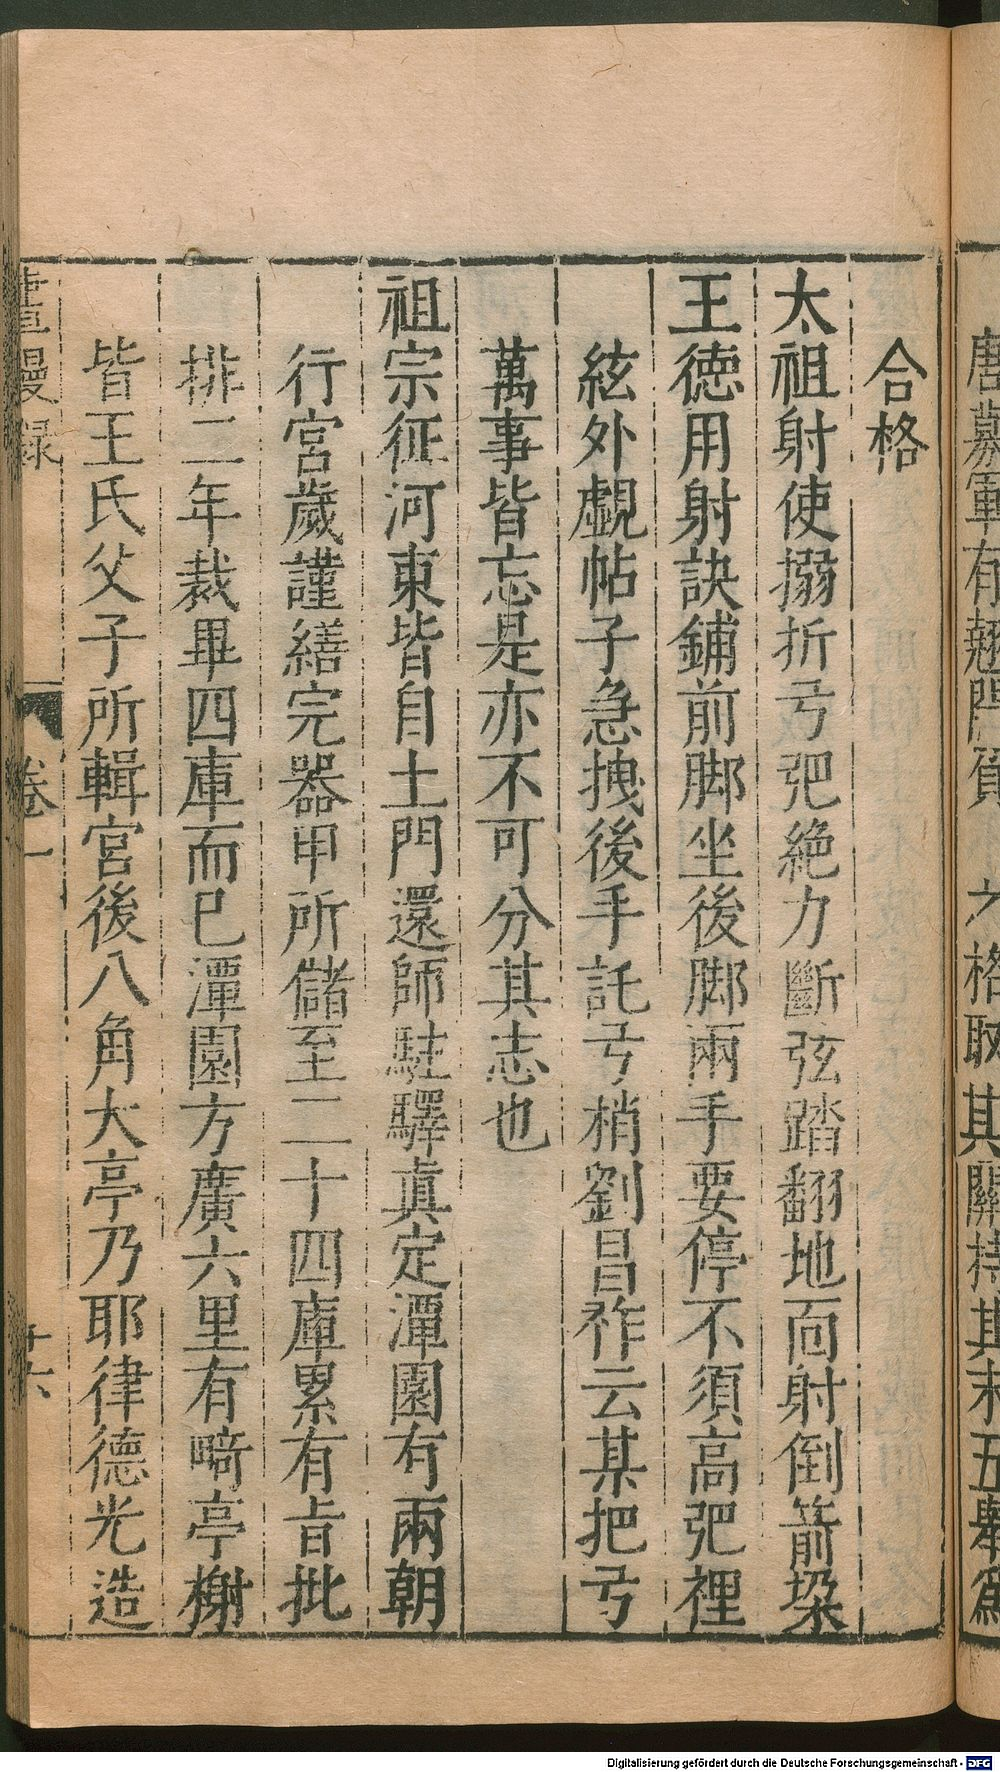 唐募軍有翹關負　之格取其關持其末五舉為
合格
太祖射使搦折弓弝絶力斷弦踏翻地面射倒箭垜
王徳用射訣鋪前脚坐後脚兩手要停不須高弝裡
絃外覷帖子急拽後手託弓梢劉昌祚云某把弓
萬事皆忘是亦不可分其志也
祖宗征河東皆自土門還師駐驛真定潭園有兩朝
行宮歲謹繕完器甲所儲至二十四庫累有旨批
排二年裁畢四庫而已潭園方廣六里有崎亭榭
皆王氏父子所輯宮後八角大亭乃耶律德光造
畫墁録
卷一
十六
Digitalisierung gefördert durch die Deutsche Forschungsgemeinschaft - DFG